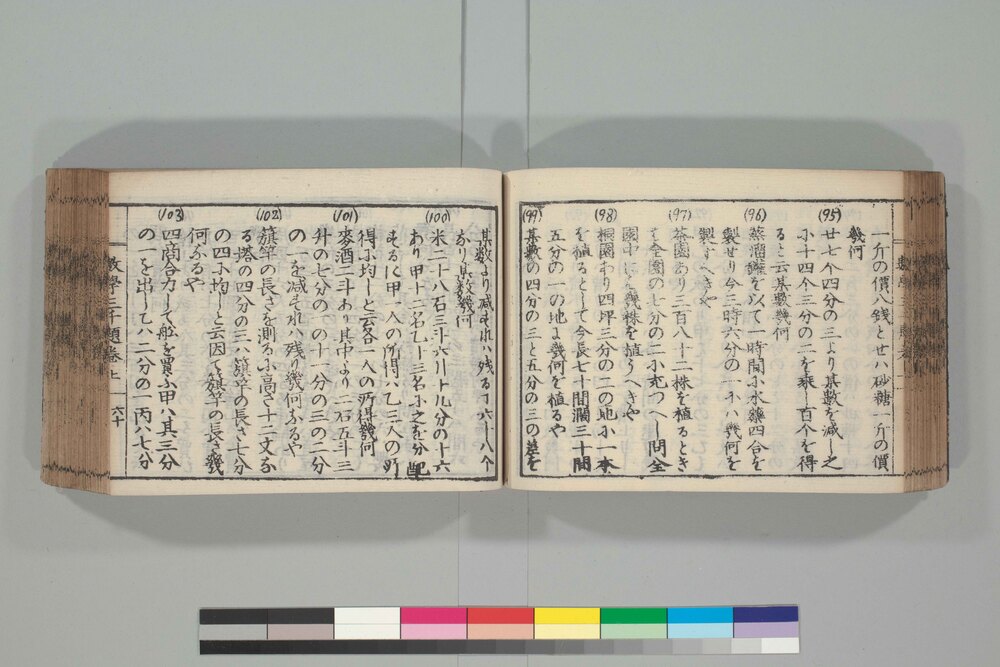 一斤の價八錢とせハ砂糖一斤の價
幾何
(95)
廿七个四分の三より某數を減し之
に十四个三分の二を乘し百个を得
ると云某數幾何
(96)
蒸溜罐を以て一時間に水藥四合を
製せり今三時六分の一にハ幾何を
製すへきや
(97)
茶園あり三百八十二株を植るとき
ハ全園の七分の二に充つへし問全
園中に幾株を植うへきや
(98)
桐園あり四坪三分の二の地に一本
を植るとして今長七十間濶三十間
五分の一の地に幾何を植るや
(99)
某數の四分の三と五分の三の差を
某數より減すれハ殘る
なり某數幾何
(100)
米二十八石三斗六升十九分の十六
あり甲十二名乙十三名に之を分配
するに甲一人の所得ハ乙三人の所
得に均しと云各一人の所得幾何
(101)
麥酒二斗あり其中より二石五斗三
升の七分の一の十一分の三の二分
の一を減すれハ殘り幾何なるや
(102)
旗竿の長さを測るに高さ十二丈な
る塔の四分の三ハ旗竿の長さ七分
の四に均しと云因て旗竿の長さ幾
何なるや
(103)
四商合力して舩を買ふ甲ハ其三分
の一を出し乙ハ二分の一丙ハ七分
數學三千題卷上
六十